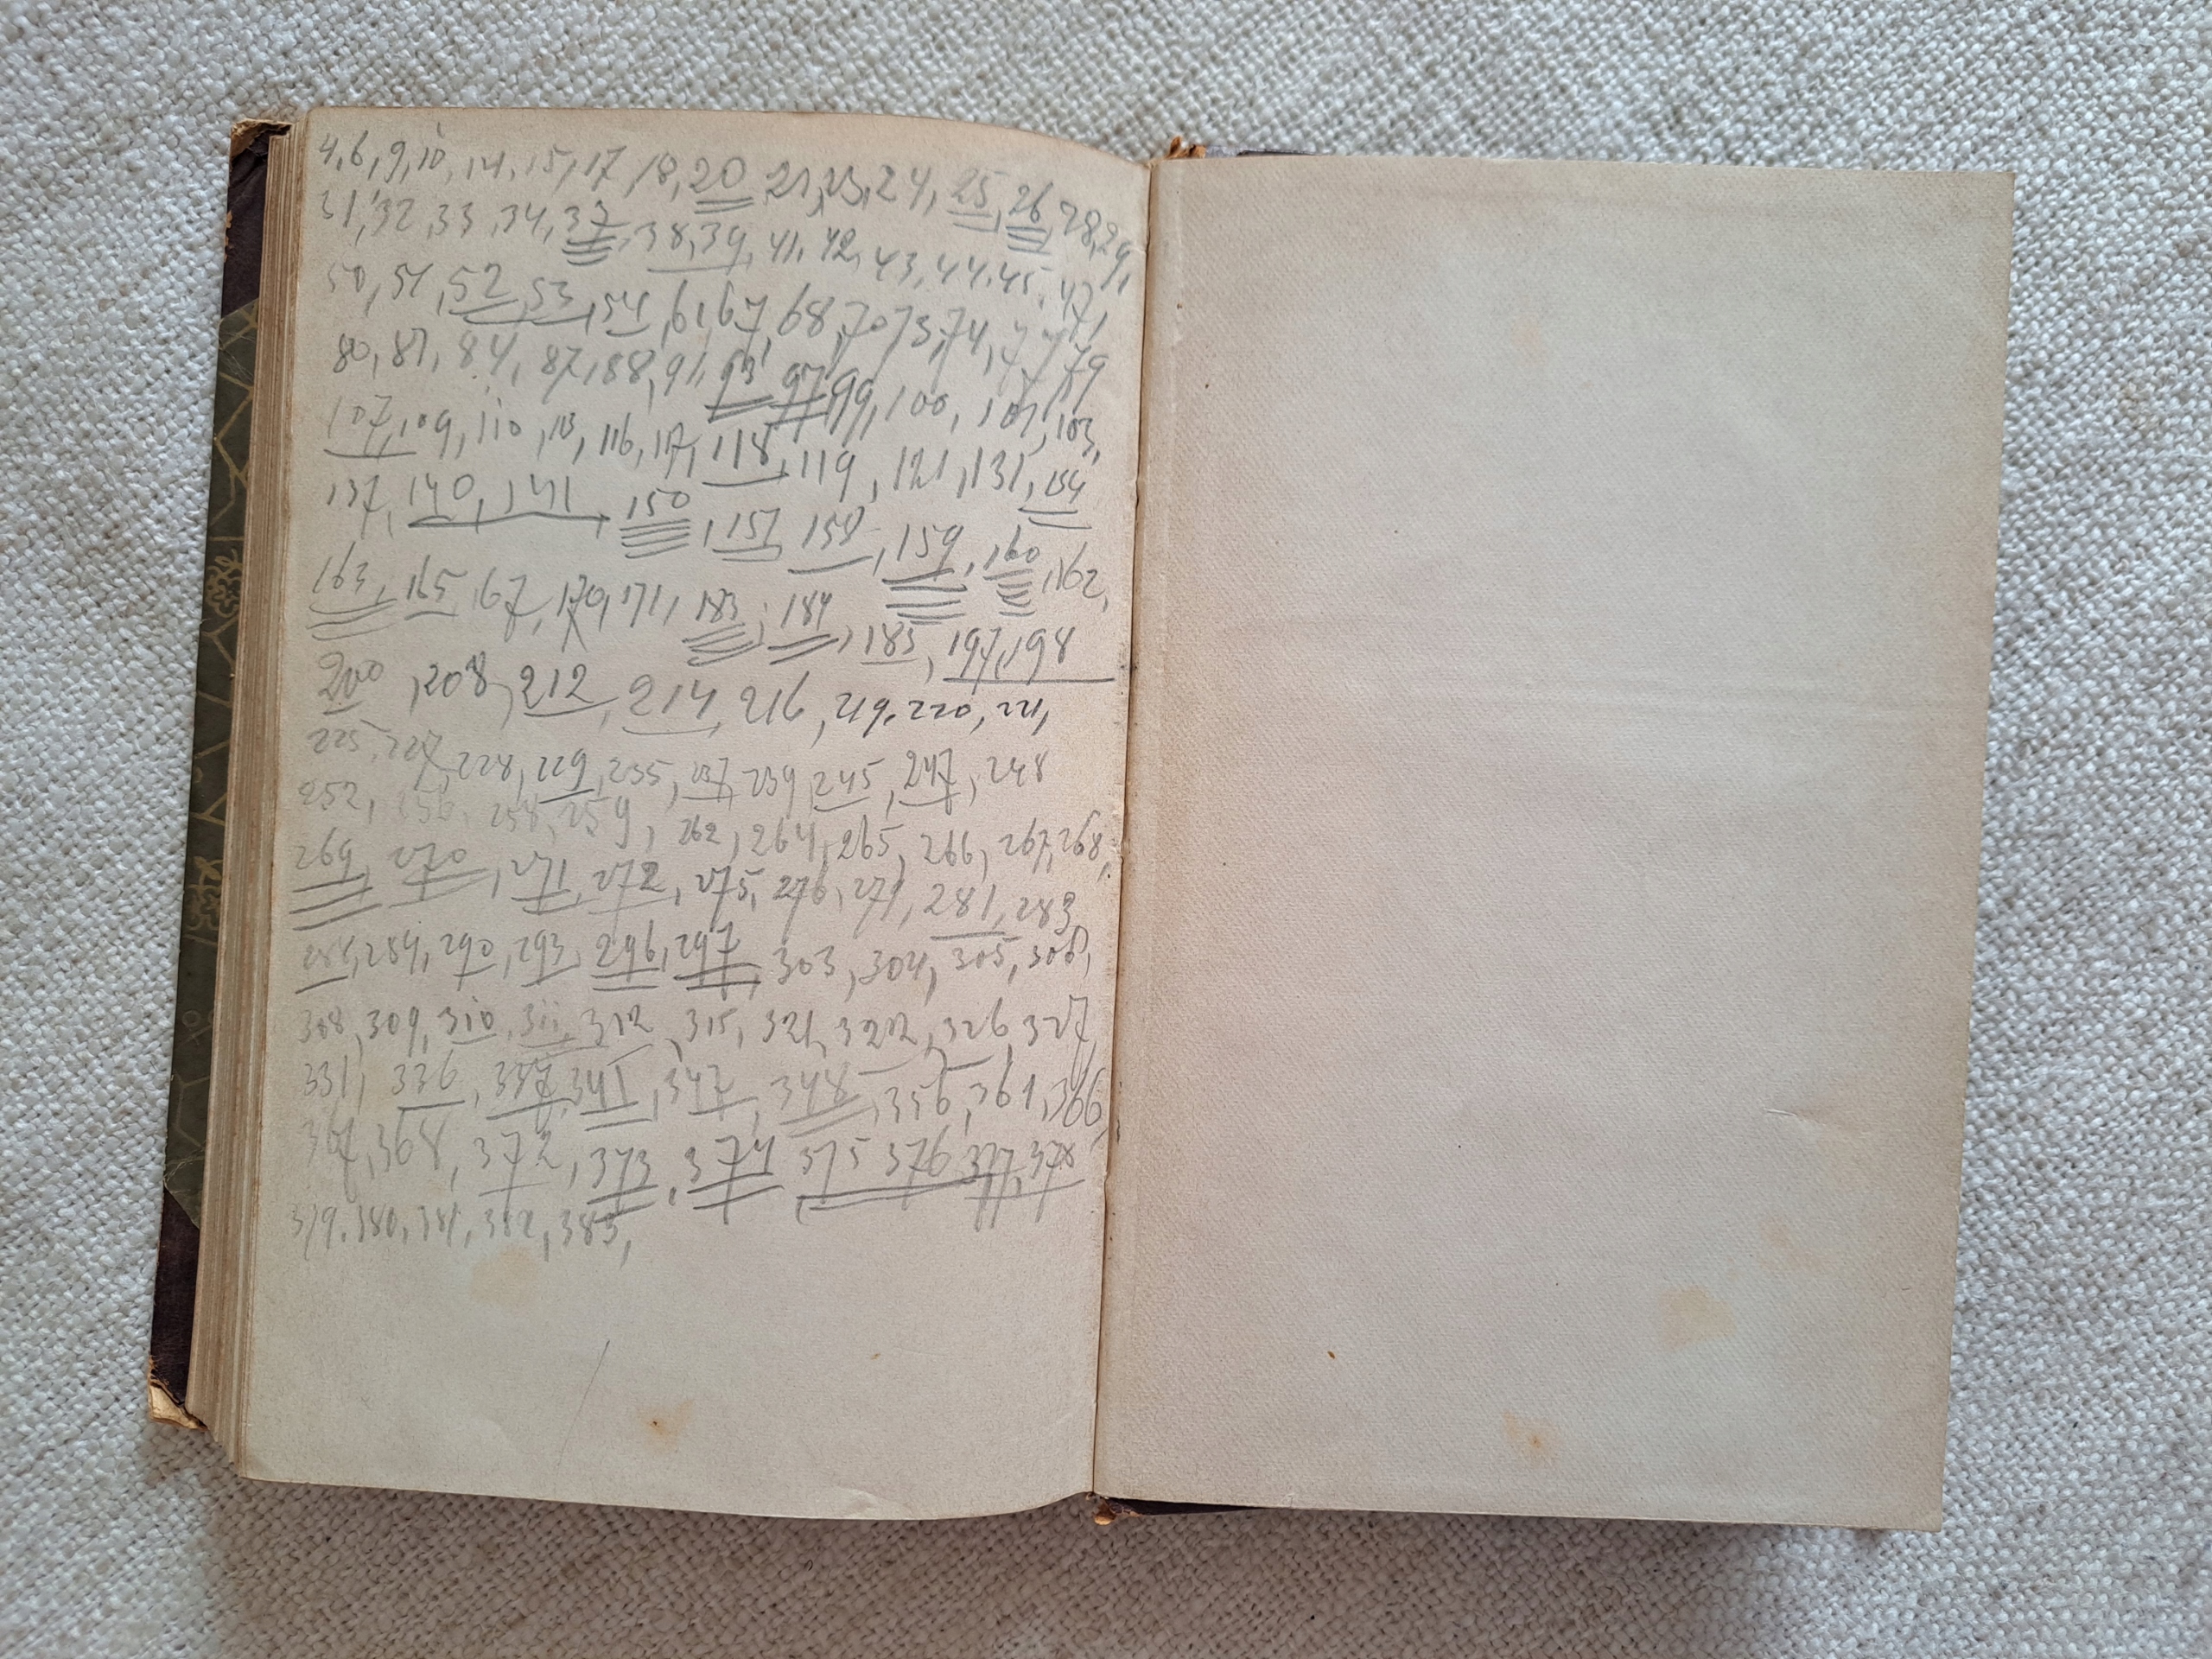 4, 6, 9, 10, 14, 15, 17, 18, 20, 21, 23, 24, 25, 26, 28, 29,
31, 32, 33, 34, 37, 38, 39, 41, 42, 43, 44, 45, 47,
50, 51, 52, 53, 54, 61, 67, 68, 70, 73, 74, 77, 79
80, 81, 84, 87, 88, 91, 93, 97, 99, 100, 101, 103,
107, 109, 110, 113, 116, 117, 118, 119, 121, 131, 134
137, 140, 141, 150, 157, 158, 159, 160, 162,
163, 165, 167, 170, 171, 183, 184, 185, 197, 198
200, 208, 212, 214, 216, 219, 220, 221,
225, 227, 228, 229, 235, 237, 239, 245, 247, 248
252, 256, 258, 259, 262, 264, 265, 266, 267, 268,
269, 270, 271, 272, 275, 276, 279, 281, 283
288, 289, 290, 293, 296, 297, 303, 304, 305, 306,
308, 309, 310, 311, 312, 315, 321, 322, 326, 327,
331, 336, 337, 341, 347, 348, 356, 361, 366,
367, 368, 372, 373, 374, 375 376 377, 378
379, 380, 381, 382, 383,